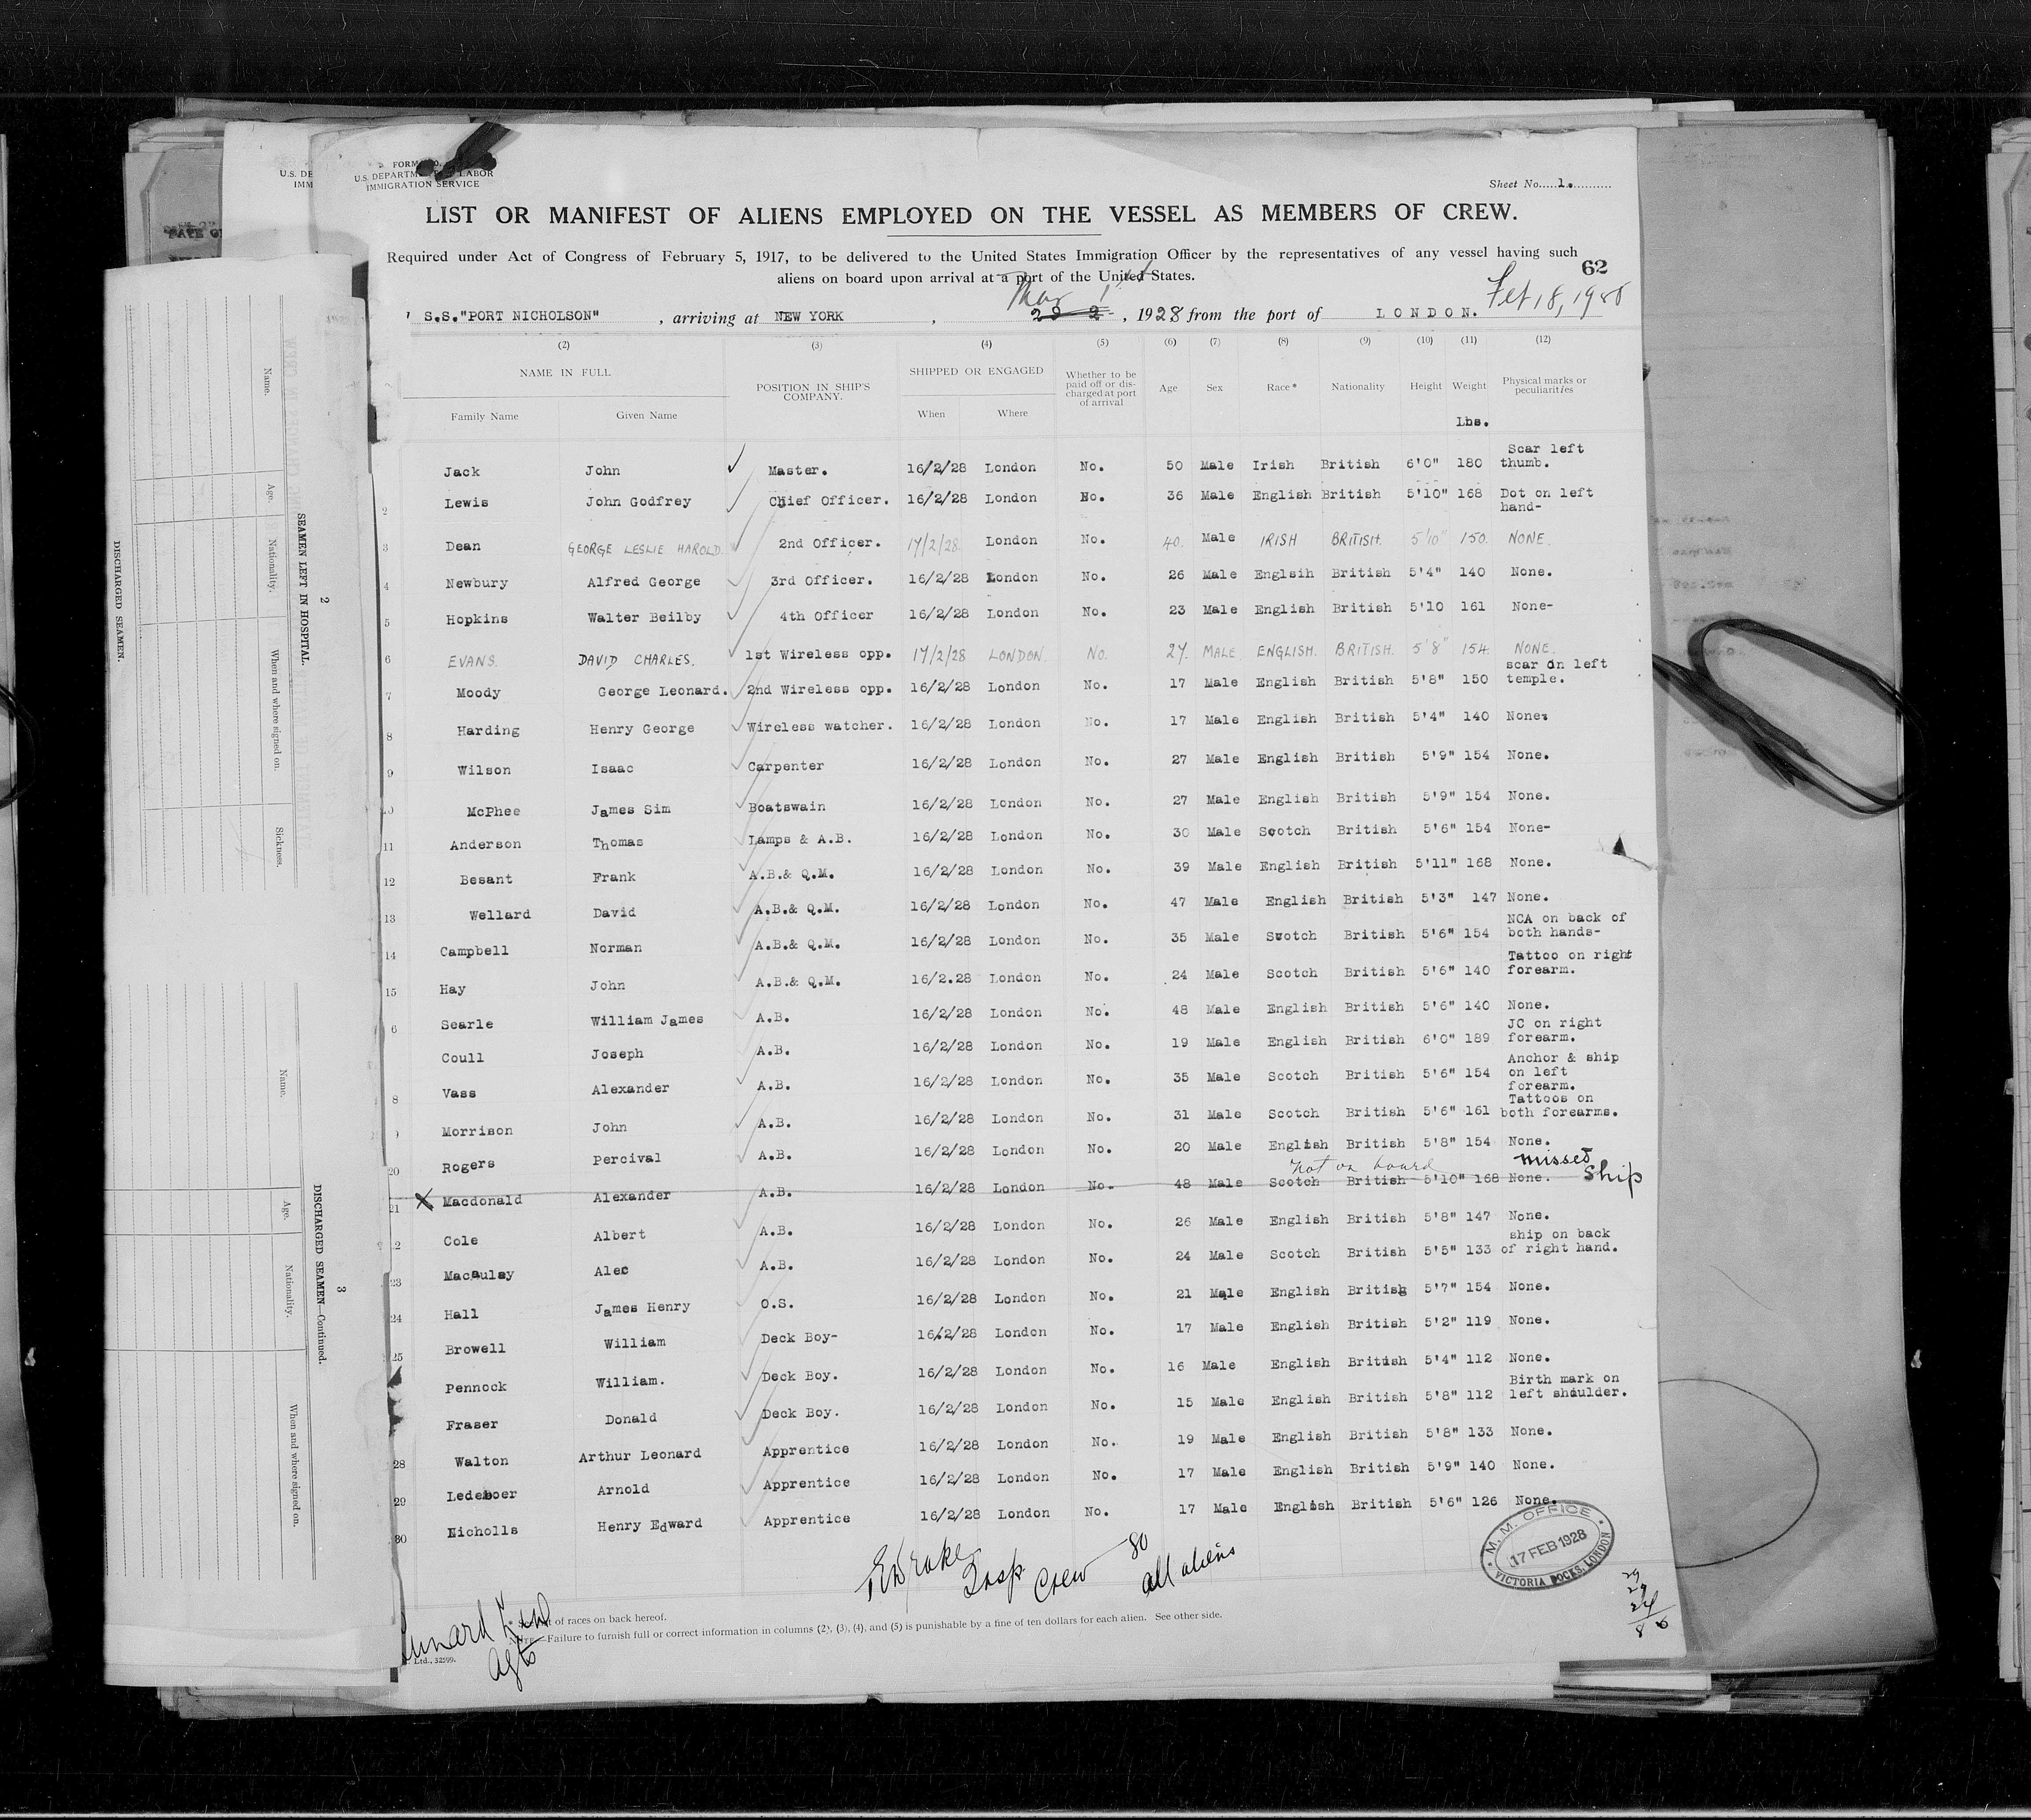 FORM
U.S. DEPARTM LABOR
IMMIGRATION SERVICE
Sheet No.....1...........
LIST OR MANIFEST OF ALIENS EMPLOYED ON THE VESSEL AS MEMBERS OF CREW.
Required under Act of Congress of February 5, 1917, to be delivered to the United States Immigration Officer by the representatives of any vessel having such
aliens on board upon arrival at a port of the United States.
62
S.S."PORT NICHOLSON" , arriving at NEW YORK , Mar 1st 1928 from the port of LONDON. Feb 18, 1928
(2) (3) (4) (5) (6) (7) (8) (9) (10) (11) (12)
NAME IN FULL POSITION IN SHIP'S COMPANY. SHIPPED OR ENGAGED Whether to be paid off or discharged at port of arrival Age Sex Race* Nationality Height Weight Physical marks or peculiarities
Family Name Given Name When Where Lbs.
Jack John Master. 16/2/28 London No. 50 Male Irish British 6'0" 180 Scar left thumb.
2 Lewis John Godfrey Chief Officer. 16/2/28 London No. 36 Male English British 5'10" 168 Dot on left hand-
3 Dean GEORGE LESLIE HAROLD. 2nd Officer. 17/2/28 London No. 40. Male IRISH BRITISH. 5'10" 150. NONE.
4 Newbury Alfred George 3rd Officer. 16/2/28 London No. 26 Male Englsih British 5'4" 140 None.
5 Hopkins Walter Beilby 4th Officer 16/2/28 London No. 23 Male English British 5'10 161 None-
6 EVANS. DAVID CHARLES. 1st Wireless opp. 17/2/28 LONDON. NO. 27. MALE. ENGLISH. BRITISH. 5'8" 154. NONE.
7 Moody George Leonard. 2nd Wireless opp. 16/2/28 London No. 17 Male English British 5'8" 150 scar on left temple.
8 Harding Henry George Wireless watcher. 16/2/28 London No. 17 Male English British 5'4" 140 None.
9 Wilson Isaac Carpenter 16/2/28 London No. 27 Male English British 5'9" 154 None.
10 McPhee James Sim Boatswain 16/2/28 London No. 27 Male English British 5'9" 154 None.
11 Anderson Thomas Lamps & A.B. 16/2/28 London No. 30 Male Scotch British 5'6" 154 None-
12 Besant Frank A.B.& Q.M. 16/2/28 London No. 39 Male English British 5'11" 168 None.
13 Wellard David A.B.& Q.M. 16/2/28 London No. 47 Male English British 5'3" 147 None.
14 Campbell Norman A.B.& Q.M. 16/2/28 London No. 35 Male Scotch British 5'6" 154 NCA on back of both hands-
15 Hay John A.B.& Q.M. 16/2.28 London No. 24 Male Scotch British 5'6" 140 Tattoo on right forearm.
6 Searle William James A.B. 16/2/28 London No. 48 Male English British 5'6" 140 None.
Coull Joseph A.B. 16/2/28 London No. 19 Male English British 6'0" 189 JC on right forearm.
8 Vass Alexander A.B. 16/2/28 London No. 35 Male Scotch British 5'6" 154 Anchor & ship on left forearm.
9 Morrison John A.B. 16/2/28 London No. 31 Male Scotch British 5'6" 161 Tattoos on both forearms.
20 Rogers Percival A.B. 16/2/28 London No. 20 Male English British 5'8" 154 None.
not on board missed ship
21 X Macdonald Alexander A.B. 16/2/28 London No. 48 Male Scotch British 5'10" 168 None.
2 Cole Albert A.B. 16/2/28 London No. 26 Male English British 5'8" 147 None.
23 Macaulay Alec A.B. 16/2/28 London No. 24 Male Scotch British 5'5" 133 ship on back of right hand.
24 Hall James Henry O.S. 16/2/28 London No. 21 Male English British 5'7" 154 None.
25 Browell William Deck Boy- 16/2/28 London No. 17 Male English British 5'2" 119 None.
Pennock William. Deck Boy. 16/2/28 London No. 16 Male English British 5'4" 112 None.
Fraser Donald Deck Boy. 16/2/28 London No. 15 Male English British 5'8" 112 Birth mark on left shoulder.
28 Walton Arthur Leonard Apprentice 16/2/28 London No. 19 Male English British 5'8" 133 None.
29 Ledeboer Arnold Apprentice 16/2/28 London No. 17 Male English British 5'9" 140 None.
30 Nicholls Henry Edward Apprentice 16/2/28 London No. 17 Male English British 5'6" 126 None.
Insp Crew 80 all aliens
M.M. OFFICE
17 FEB 1928
VICTORIA DOCKS, LONDON
of races on back hereof.
NOTE—Failure to furnish full or correct information in columns (2), (3), (4), and (5) is punishable by a fine of ten dollars for each alien. See other side.
Ltd., 32599.
Cunard Line
Agts
SEAMEN LEFT IN HOSPITAL.
2
Name.
Age.
Nationality.
When and where signed on.
Sickness.
DISCHARGED SEAMEN.
3
DISCHARGED SEAMEN—Continued.
Name.
Age.
Nationality.
When and where signed on.